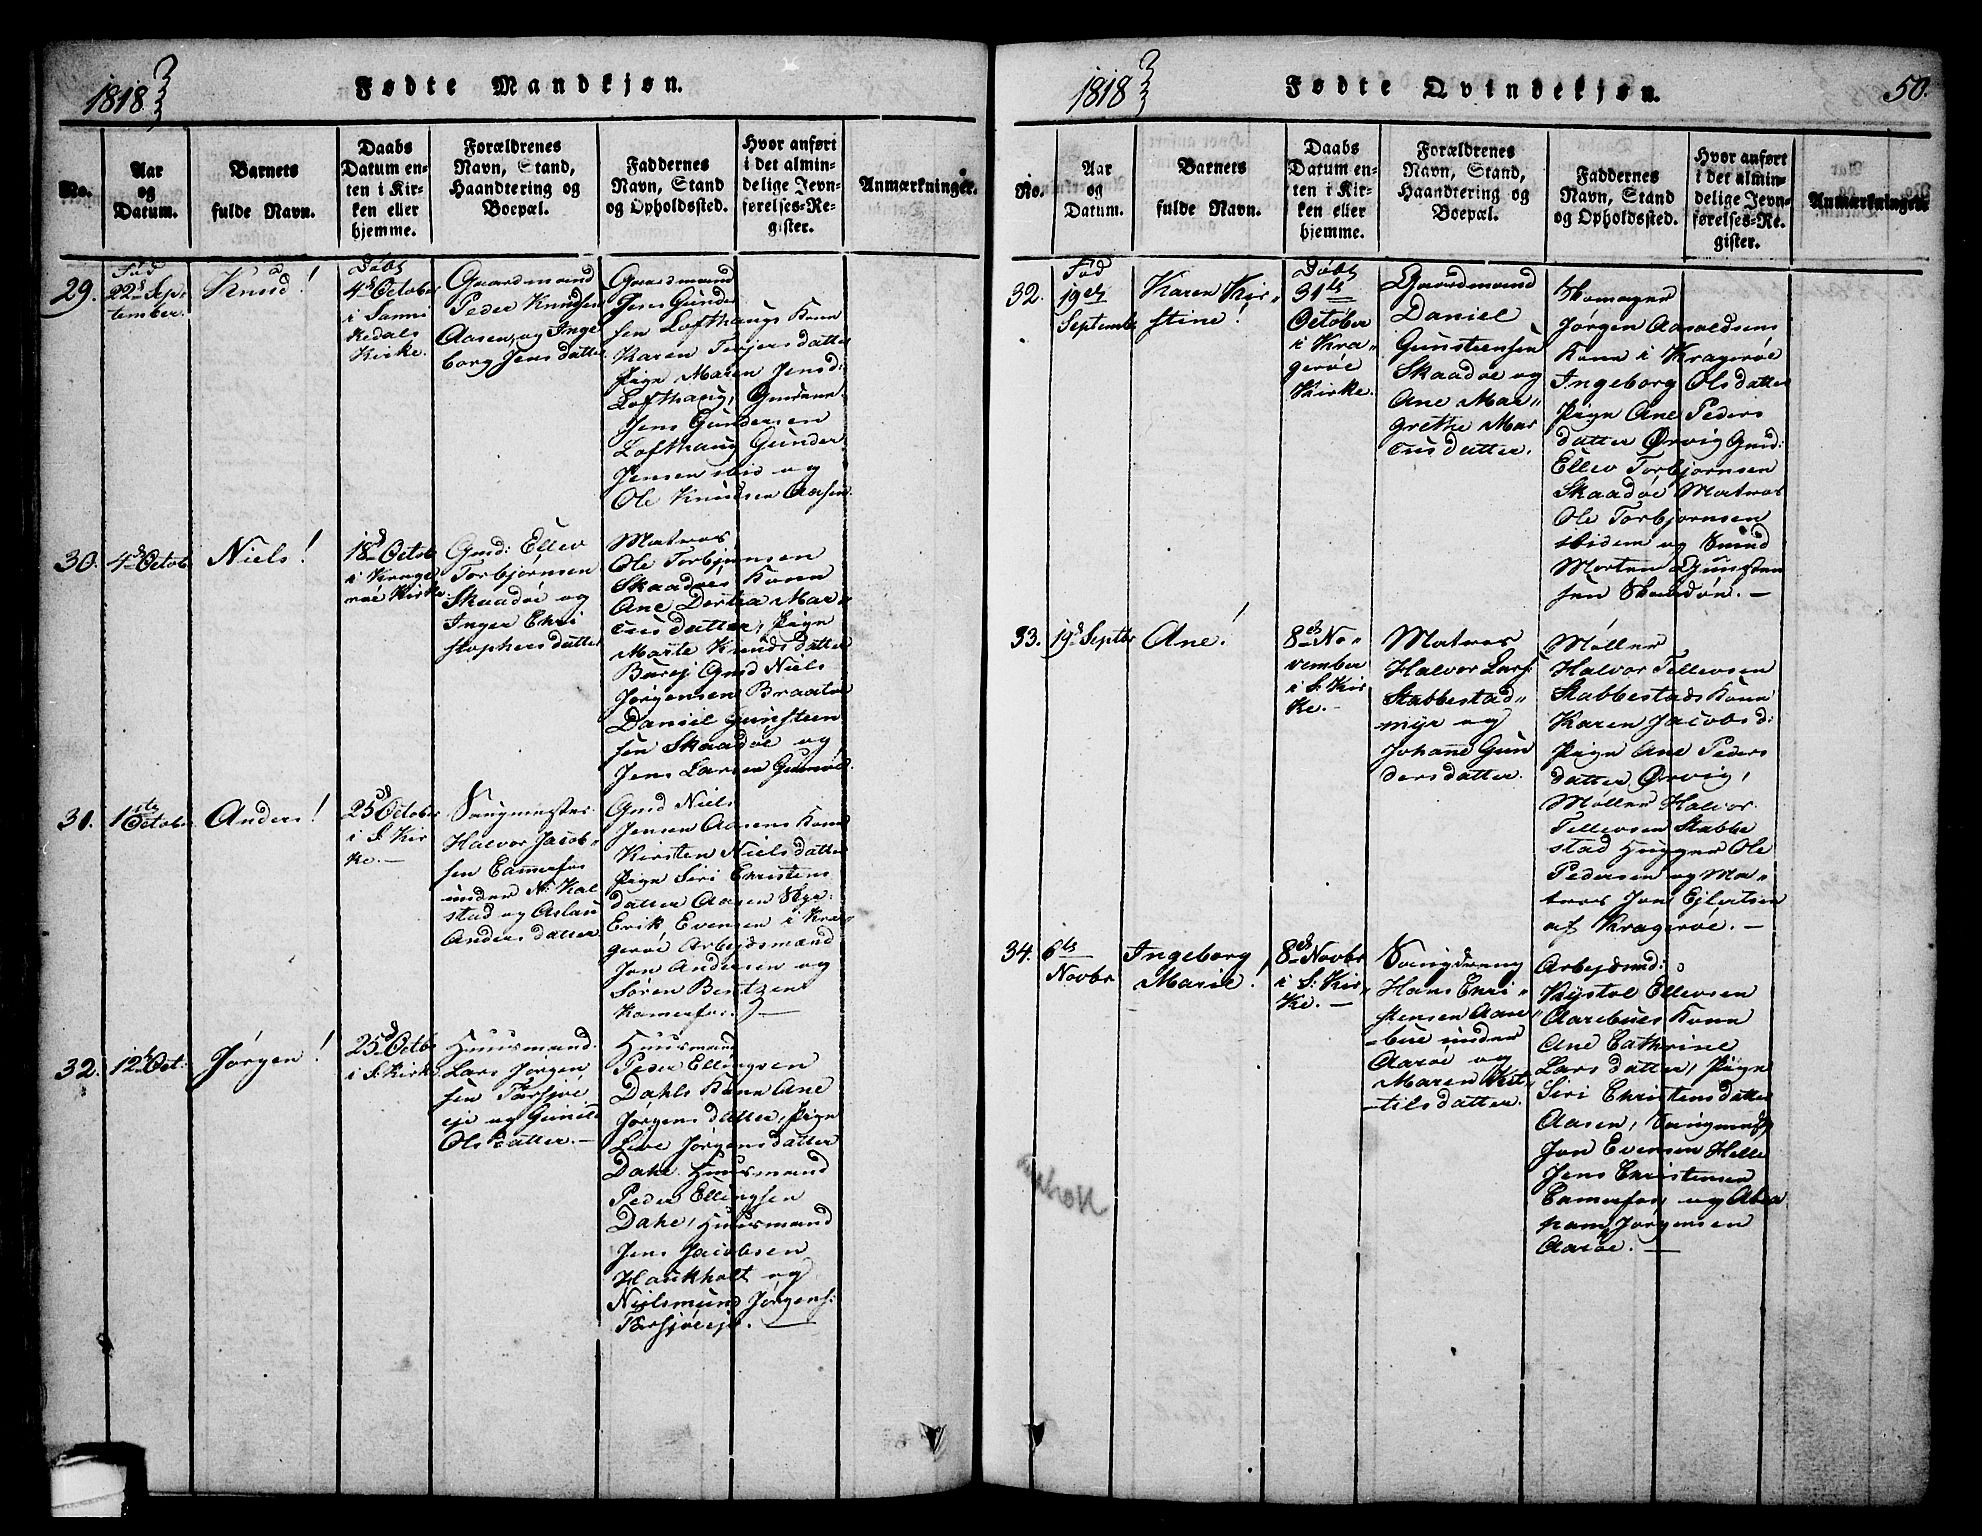 1818
Fødte Mandkjøn.
No.
Aar
og
Datum.
Barnets
fulde Navn.
Daabs
Datum en-
ten i Kir-
ken eller
hjemme.
Forældrenes
Navn, Stand,
Haandtering og
Boepæl.
Faddernes
Navn, Stand
og Opholdssted.
Hvor anført
i det almin-
delige Jevn-
førelses-Re-
gister.
Anmærkninger.
29.
Fød
22d Sep-
tember.
Knud!
Døbt
4d October
i Sanni
kedals
Kirke.
Gaardmand
Peder Knudsen
Aasen, og Inge
borg Jensdatter
Gaardmand
Jens Gunder
sen Lofthaugs Kone
Karen Terjersdatter
Pige Maren Jensd:
Lofthaug,
Jens Gundersen
Lofthaug Gunder
Jensen ibid og
Ole Knudsen Aasen.
30.
4d Octob
Niels!
18d Octob
i Krage
røe Kirke
Gmd: Ellev
Torbjørnsen
Skaadøe og
Inger Chri
stophersdatter
Matros
Ole Torbjønsen
Skaadøes Kone
Ane Dortea Mar-
tisdatter, Pige
Marte Knudsdatter
Burøj Gmd Niels
Jørgensen Braatøe
Daniel Gunsteen
sen Skaadøe og
Jens Larsen
31.
1ste
October
Anders!
25d October
i S. Kir
ke.
Saugmester
Halvor Jacob-
sen Camerfos
under N. Kal
stad og Aslau
Andersdatter
Gmd Niels
Jensen Aasens Kone
Kirsten Nielsdatter
Pige Siri Christens
datter Aasen
Erik Evensen i Kra-
gerøe Arbejdsmænd
Jon Andersen og
Søren Bentzen
Kamerfos.
32.
12d Oct:
Jørgen!
25d Octb
i S. Kirke
Huusmand
Lars Jørgen
sen Tarsjøe
eje og Gunild
Olsdatter.
Huusmand
Peder Ellingsen
Dahls Kone Ane
Jørgensdatter, Pige
Live Jørgensdatter
Dahl. Huusmand
Peder Ellingsen
Dahl, Huusmand
Jens Jacobsen
Haukholt og
Jørgens:
Tarsjøeeje.
1818
Fødte Qvindekjøn.
50.
No.
Aar
og
Datum.
Barnets
fulde Navn.
Daabs
Datum en-
ten i Kir-
ken eller
hjemme.
Forældrenes
Navn, Stand,
Haandtering og
Boepæl.
Faddernes
Navn, Stand
og Opholdssted.
Hvor anført
i det almin-
delige Jevn-
førelses-Re-
gister.
Anmærkninger.
32.
Fød
19de
September
Karen Kir-
stine!
Døbt
31te
October
i Kra-
gerøe
Kirke.
Gaardmand
Daniel
Gunsteensen
Skaadøe og
Ane Mar-
grethe Mar
tisdatter.
Skomager
Jørgen Aasoldsens
Kone i Kragerøe
Ingeborg Olsdatter
Pige Ane Peders
datter Ørvig Gmd:
Ellev Torbjørnsen
Skaadøe Matros
Ole Torbjørnsen
ibidem og
Morten Gunsten
sen Skaadøe.
33.
19d Septbr
Ane!
8de No-
vember
i S. Kir
ke.
Matros
Halvor Lars:
Stabbestad-
myr og
Johanne Gun
dersdatter.
Møller
Halvor Tellevsen
Stabbestads Kone
Karen Jacobsd:
Pige Ane Peders
datter Ørvig,
Møller Halvor
Tellevsen Stabbe
stad Hugger Ole
Pedersen og Ma-
tros Jon Ejlertsen
af Kragerøe.
34.
6te
Novbr
Ingeborg
Marie!
8de Novbr
i S: Kir-
ke.
Hans Chri-
stensen Aare
bue under
Aarøe og
Maren Ket
tilsdatter.
Arbejdsmd:
Kjøstol Ellevsen
Aarebues Kone
Ane Cathrine
Larsdatter, Pige
Siri Christensdatter
Aasen,
Jon Evensen Helle
Jens Christensen
Camerfos, og Abra
ham Jørgensen
Aarøe.